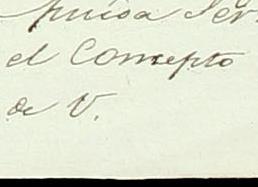 pueda Ser
el Concepto
de V.